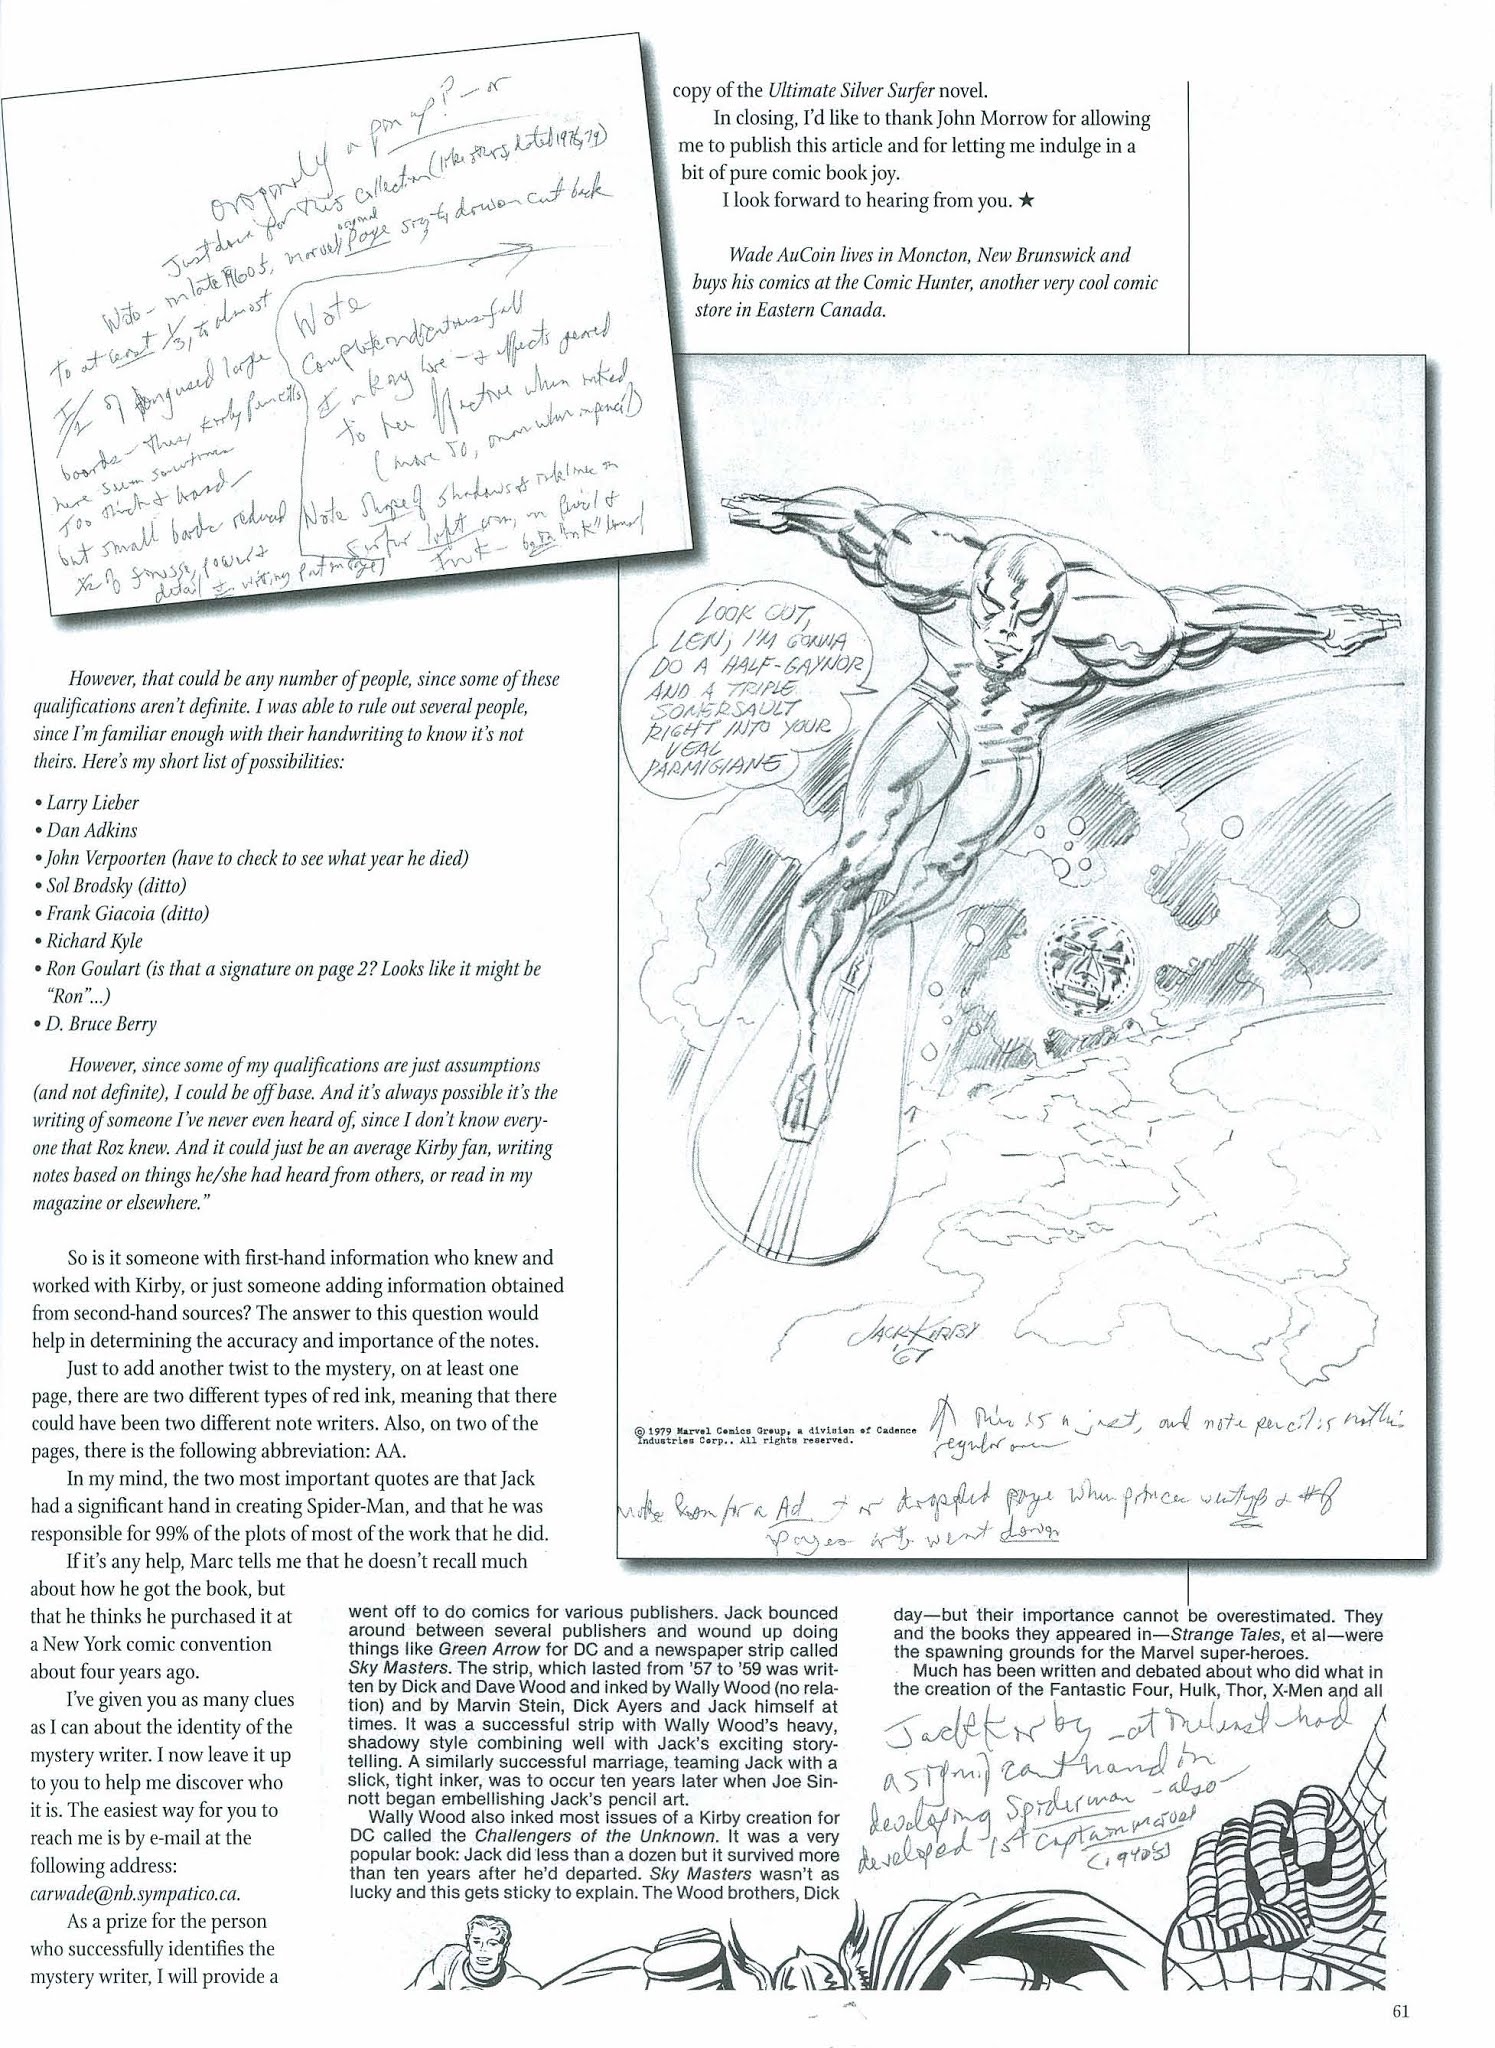 originally a pin up? – or
Just done for this collection (like others, dated 1978, 79)
Note – in late 1960s, marvel original page size is down cut back
to at least 1/3, to almost
1/2 of large
boards – thus, Kirby pencils
here seem sometimes
too thick & hard –
but small board reduced
detail
Note
Complete indications full
Inking line – & effects geared
to be effective when inked
(more so, than when in pencil)
Note shape of shadows & in
Surfer left arm, in pencil &
Ink – both "ink"
copy of the Ultimate Silver Surfer novel.
In closing, I'd like to thank John Morrow for allowing
me to publish this article and for letting me indulge in a
bit of pure comic book joy.
I look forward to hearing from you. ★
Wade AuCoin lives in Moncton, New Brunswick and
buys his comics at the Comic Hunter, another very cool comic
store in Eastern Canada.
However, that could be any number of people, since some of these
qualifications aren't definite. I was able to rule out several people,
since I'm familiar enough with their handwriting to know it's not
theirs. Here's my short list of possibilities:
• Larry Lieber
• Dan Adkins
• John Verpoorten (have to check to see what year he died)
• Sol Brodsky (ditto)
• Frank Giacoia (ditto)
• Richard Kyle
• Ron Goulart (is that a signature on page 2? Looks like it might be
"Ron"...)
• D. Bruce Berry
However, since some of my qualifications are just assumptions
(and not definite), I could be off base. And it's always possible it's the
writing of someone I've never even heard of, since I don't know every-
one that Roz knew. And it could just be an average Kirby fan, writing
notes based on things he/she had heard from others, or read in my
magazine or elsewhere."
So is it someone with first-hand information who knew and
worked with Kirby, or just someone adding information obtained
from second-hand sources? The answer to this question would
help in determining the accuracy and importance of the notes.
Just to add another twist to the mystery, on at least one
page, there are two different types of red ink, meaning that there
could have been two different note writers. Also, on two of the
pages, there is the following abbreviation: AA.
In my mind, the two most important quotes are that Jack
had a significant hand in creating Spider-Man, and that he was
responsible for 99% of the plots of most of the work that he did.
If it's any help, Marc tells me that he doesn't recall much
about how he got the book, but
that he thinks he purchased it at
a New York comic convention
about four years ago.
I've given you as many clues
as I can about the identity of the
mystery writer. I now leave it up
to you to help me discover who
it is. The easiest way for you to
reach me is by e-mail at the
following address:
carwade@nb.sympatico.ca.
As a prize for the person
who successfully identifies the
mystery writer, I will provide a
LOOK OUT,
LEN, I'M GONNA
DO A HALF-GAYNOR
AND A TRIPLE
SOMERSAULT
RIGHT INTO YOUR
VEAL
PARMIGIANE
JACK KIRBY
'67
© 1979 Marvel Comics Group, a division of Cadence
Industries Corp.. All rights reserved.
This is a just, and note pencil is not his
regular one
make Room for a Ad + or dropped page when prices went up &
pages went down
went off to do comics for various publishers. Jack bounced
around between several publishers and wound up doing
things like Green Arrow for DC and a newspaper strip called
Sky Masters. The strip, which lasted from '57 to '59 was writ-
ten by Dick and Dave Wood and inked by Wally Wood (no rela-
tion) and by Marvin Stein, Dick Ayers and Jack himself at
times. It was a successful strip with Wally Wood's heavy,
shadowy style combining well with Jack's exciting story-
telling. A similarly successful marriage, teaming Jack with a
slick, tight inker, was to occur ten years later when Joe Sin-
nott began embellishing Jack's pencil art.
Wally Wood also inked most issues of a Kirby creation for
DC called the Challengers of the Unknown. It was a very
popular book: Jack did less than a dozen but it survived more
than ten years after he'd departed. Sky Masters wasn't as
lucky and this gets sticky to explain. The Wood brothers, Dick
day—but their importance cannot be overestimated. They
and the books they appeared in—Strange Tales, et al—were
the spawning grounds for the Marvel super-heroes.
Much has been written and debated about who did what in
the creation of the Fantastic Four, Hulk, Thor, X-Men and all
Jack Kirby – at the least had
a significant hand in
developing Spiderman – also
developed 1st Captain marvel
(1940s)
61